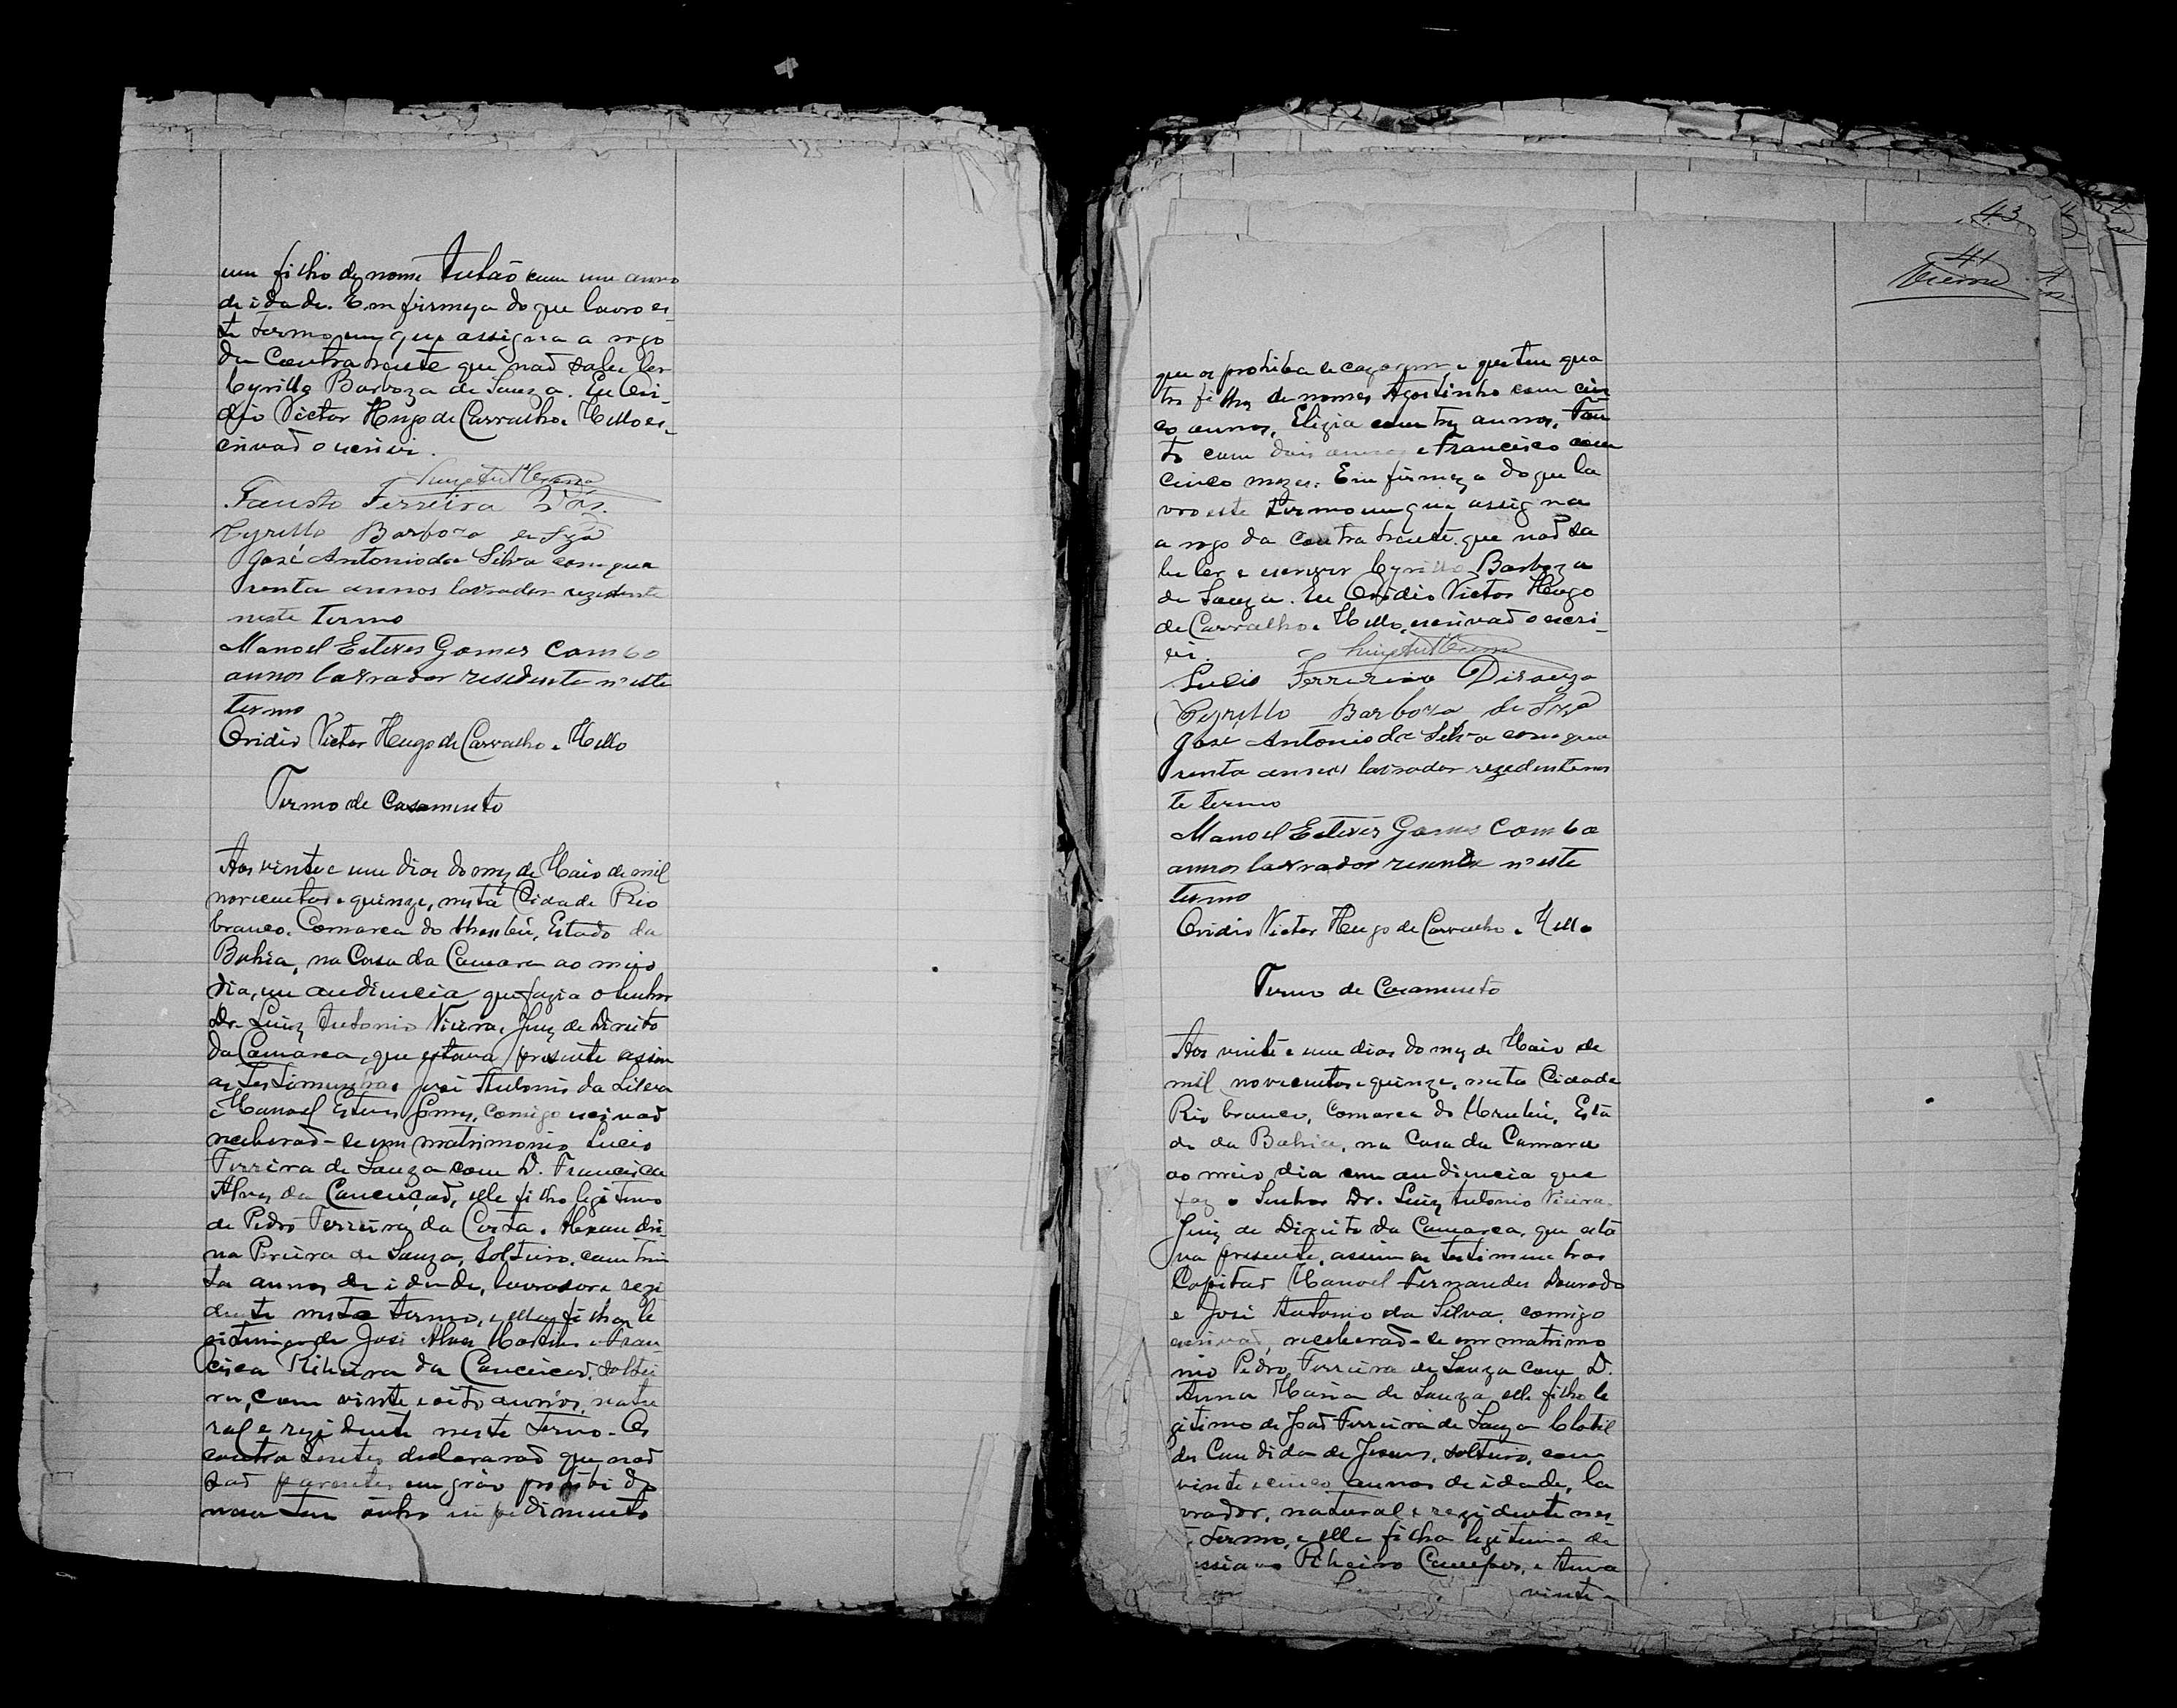 um filho de nome Antonio com um anno
de idade. Em firmeza do que lavro es-
te termo em que assigna a rogo
da Contrahente que naõ sabe ler
Cyrillo Barboza de Souza. Eu Ovi-
dio Victor Hugo de Carvalho e Mello es-
crivaõ o escrivi.
Luiz Ant Vieira
Fausto Ferreira
Cyrillo Barboza de Sza
José Antonio da Silva com qua
renta annos lavrador rezidente
neste termo
Manoel Esteves Gomes Com 60
annos lavrador residente n'este
termo
Ovidio Victor Hugo de Carvalho e Mello
Termo de Casamento
Aos vinte e um dias do mez de Maio de mil
novecentos e quinze, nesta Cidade Rio
branco, Comarca do Urubú, Estado da
Bahia, na Casa da Camara ao meio
dia, em audiencia que fazia o Senhor
Dr. Luiz Antonio Vieira, Juiz de Direito
da Comarca, que estava presente assim
as testimunhas José Antonio da Silva
e Manoel Esteves Gomes, comigo escrivaõ
receberaõ-se em matrimonio Lucio
Ferreira de Souza com D. Francisca
Alves da Conceiçaõ, elle filho legitimo
de Pedro Ferreira da Costa e Alexandri-
na Pereira de Souza, solteiro, com trin
ta annos de idade, lavrador e rezi
dente neste termo, e ella filha le
gitima de José Alves Martins e Fran-
cisca Ribeira da Conceicaõ, soltei
ra, com vinte e oito annos, natu
ral e rezidente neste Termo. Os
contrahentes declararaõ que naõ
saõ parentes em gráo prohibido
nem tem outro impedimento
43
41
Vieira
que os prohiba de cazarem, e que tem qua
tro filhos de nomes Agostinho com cin
co annos, Eligia com trez annos, Fau
to com dois annos e Francisco com
cinco mezes. Em firmeza do que la
vro este termo em que assigna
a rogo da Contrahente que naõ sa
be ler e escrever Cyrillo Barboza
de Souza. Eu Ovidio Victor Hugo
de Carvalho e Mello, escrivaõ o escri-
vi.
Luiz Ant Vieira
Lucio Ferreira Disouza
Cyrillo Barboza de Sza
José Antonio da Silva com qua
renta annos lavrador rezidente nes
te termo
Manoel Esteves Gomes Com 60
annos lavrador resende n'este
termo
Ovidio Victor Hugo de Carvalho e Mello
Termo de Casamento
Aos vinte e um dias do mez de Maio de
mil novecentos e quinze, nesta Cidade
Rio branco, Comarca do Urubú, Esta
do da Bahia, na Casa da Camara
ao meio dia em audiencia que
faz o Senhor Dr. Luiz Antonio Vieira
Juiz de Direito da Comarca, que esta
va presente, assim as testimunhas
Capitaõ Manoel Fernandes Dourado
e José Antonio da Silva, comigo
escrivaõ, receberaõ-se em matrimo
nio Pedro Ferreira de Souza com D.
Anna Maria de Souza, elle filho le
gitimo de Joaõ Ferreira de Souza e Clotil
des Candida de Jesus, solteiro, com
vinte e cinco annos de idade, la
vrador, natural e rezidente nes
termo, e ella filha legitima de
Ribeiro Campos, e Anna
vinte e